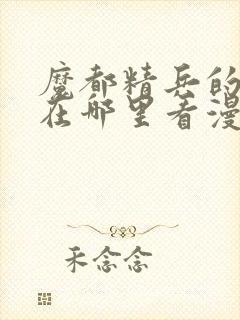 魔都精兵的
在哪里看漫
禾念念